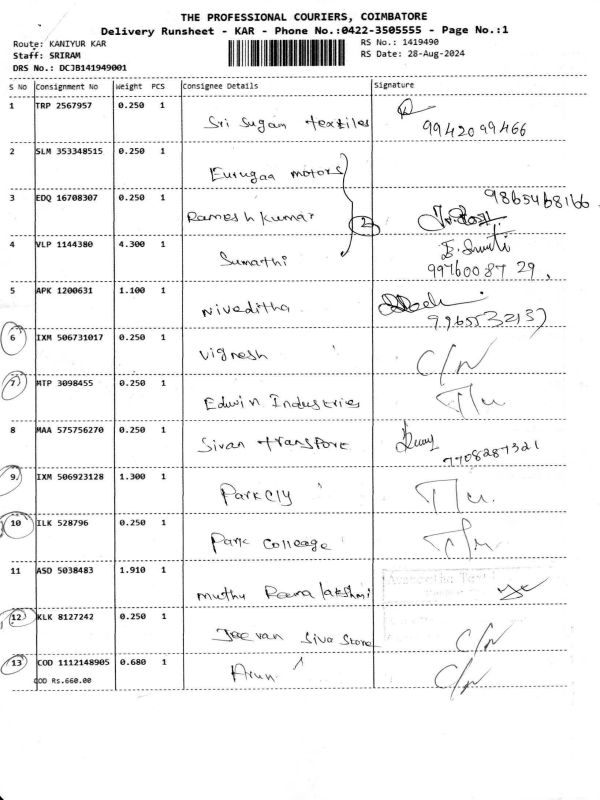 THE PROFESSIONAL COURIERS, COIMBATORE
Delivery Runsheet - KAR - Phone No.:0422-3505555 - Page No.:1
Route: KANIYUR KAR
Staff: SRIRAM
DRS No.: DCJB141949001
RS No.: 1419490
RS Date: 28-Aug-2024
S No Consignment No Weight PCS Consignee Details Signature
1 TRP 2567957 0.250 1 Sri Sugam textiles
9942099466
2 SLM 353348515 0.250 1 Eurugaa motors
3 EDQ 16708307 0.250 1 Rameshkumar 2 9865468166
4 VLP 1144380 4.300 1 Sumathi
9976008729,
5 APK 1200631 1.100 1 Niveditha
9965532137
6 IXM 506731017 0.250 1 Vignesh C/N
7 MTP 3098455 0.250 1 Edwin Industries
8 MAA 575756270 0.250 1 Sivan transport
7708287321
9 IXM 506923128 1.300 1 Park Cly
10 ILK 528796 0.250 1 Park Colleage
11 ASD 5038483 1.910 1 Muthu Rama lakshmi
12 KLK 8127242 0.250 1 Jeevan Siva Store C/N
13 COD 1112148905 0.680 1 Arun C/N
COD Rs.660.00